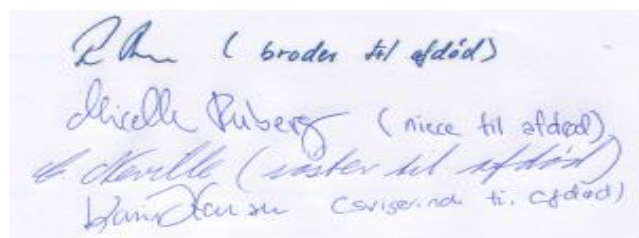 (broder til afdød)
Micelle Ruberg (niece til afdød)
Neville (søster til afdød)
Hansen (svigerinde til afdød)